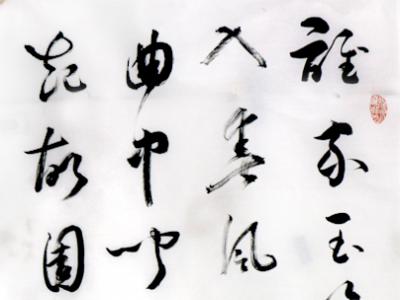 誰家玉
入春風
曲中聞
起故園